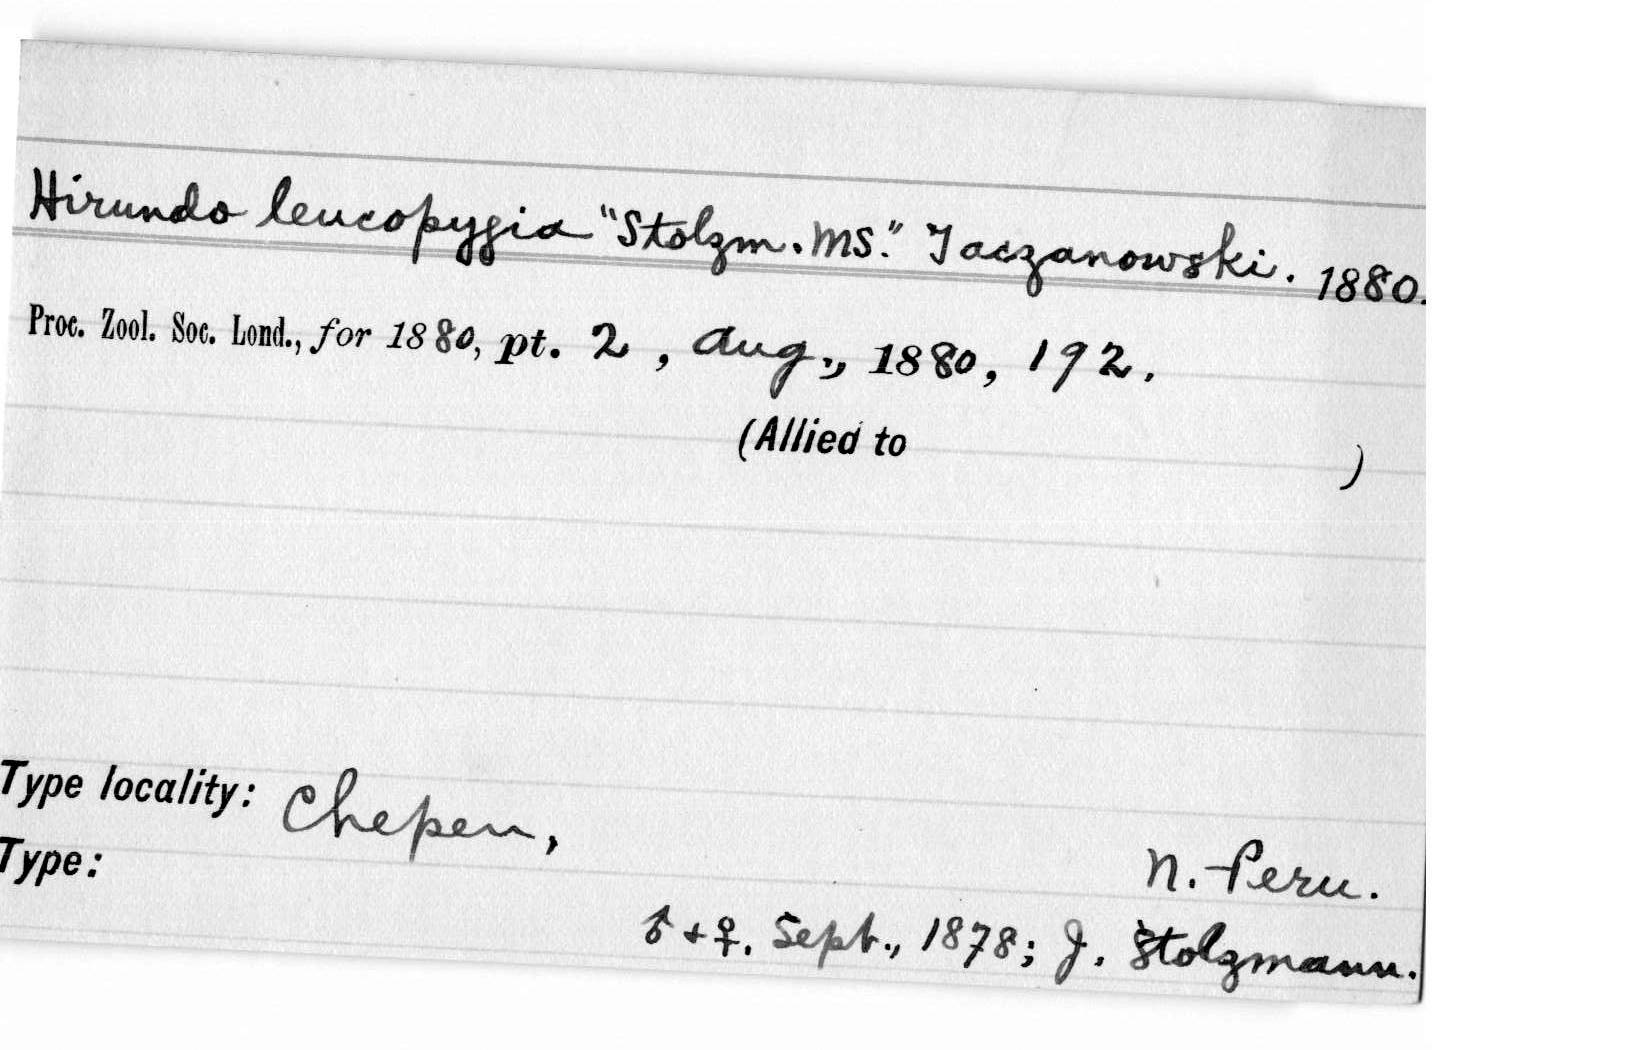 Hirundo leucopygia "Stolzm. MS." Taczanowski. 1880.
Proc. Zool. Soc. Lond., for 1880, pt. 2, Aug., 1880, 192.
(Allied to )
Type locality: Chepen,
N. Peru.
Type:
♂ + ♀. Sept., 1878; J. Stolzmann.